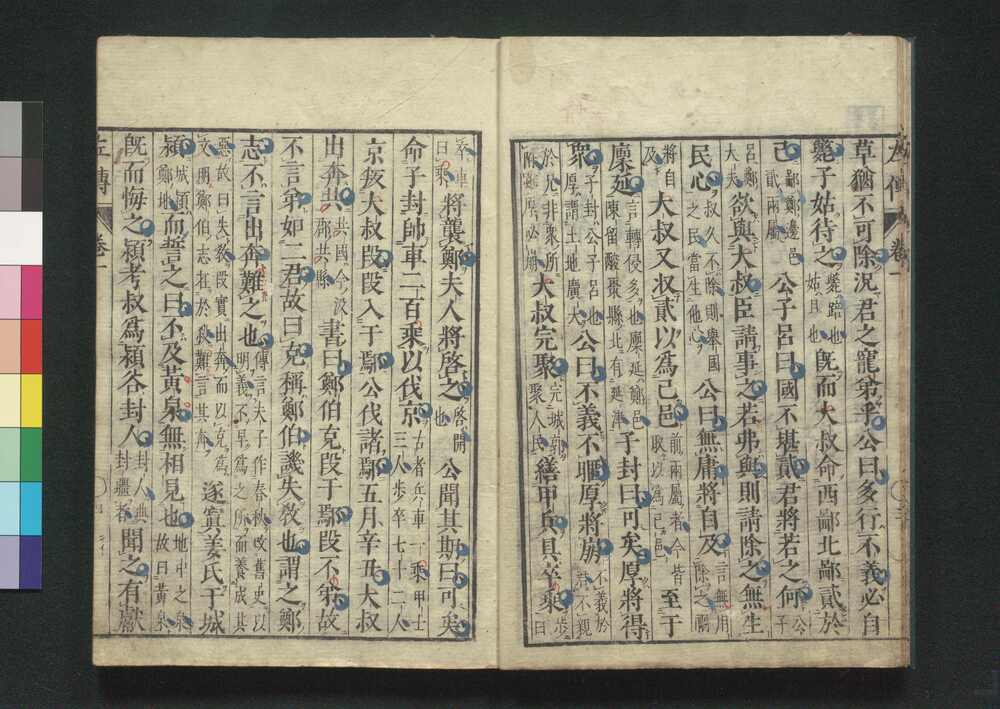 左傳 卷一
草猶不可除況君之寵弟乎公曰多行不義必自
斃子姑待之斃踣也姑且也既而大叔命西鄙北鄙貳於
己鄙鄭邊邑貳兩屬公子呂曰國不堪貳君將若之何公子
呂鄭大夫欲與大叔臣請事之若弗與則請除之無生
民心叔久不除則舉國之民當生他心公曰無庸將自及言無用除之禍
將自及大叔又收貳以爲己邑前兩屬者今皆取以爲己邑至于
廩延言轉侵多也廩延鄭邑陳留酸棗縣北有延津子封曰可矣厚將得
衆子封公子呂也厚謂土地廣大公曰不義不暱厚將崩不義於君不親
於兄非衆所附雖厚必崩大叔完聚完城郭聚人民繕甲兵具卒乘步曰
卒車曰乘將襲鄭夫人將啓之啓開也公聞其期曰可矣
命子封帥車二百乘以伐京古者兵車一乘甲士三人步卒七十二人
京叛大叔段段入于鄢公伐諸鄢五月辛丑大叔
出奔共共國今汲郡共縣書曰鄭伯克段于鄢段不弟故
不言弟如二君故曰克稱鄭伯譏失敎也謂之鄭
志不言出奔難之也傳言夫子作春秋改舊史以明義不早爲之所而養成其
惡故曰失敎段實出奔而以克爲文明鄭伯志在於殺難言其奔遂寘姜氏于城
潁城潁鄭地而誓之曰不及黃泉無相見也地中之泉故曰黃泉
旣而悔之潁考叔爲潁谷封人封人典封疆者聞之有獻
左傳 卷一